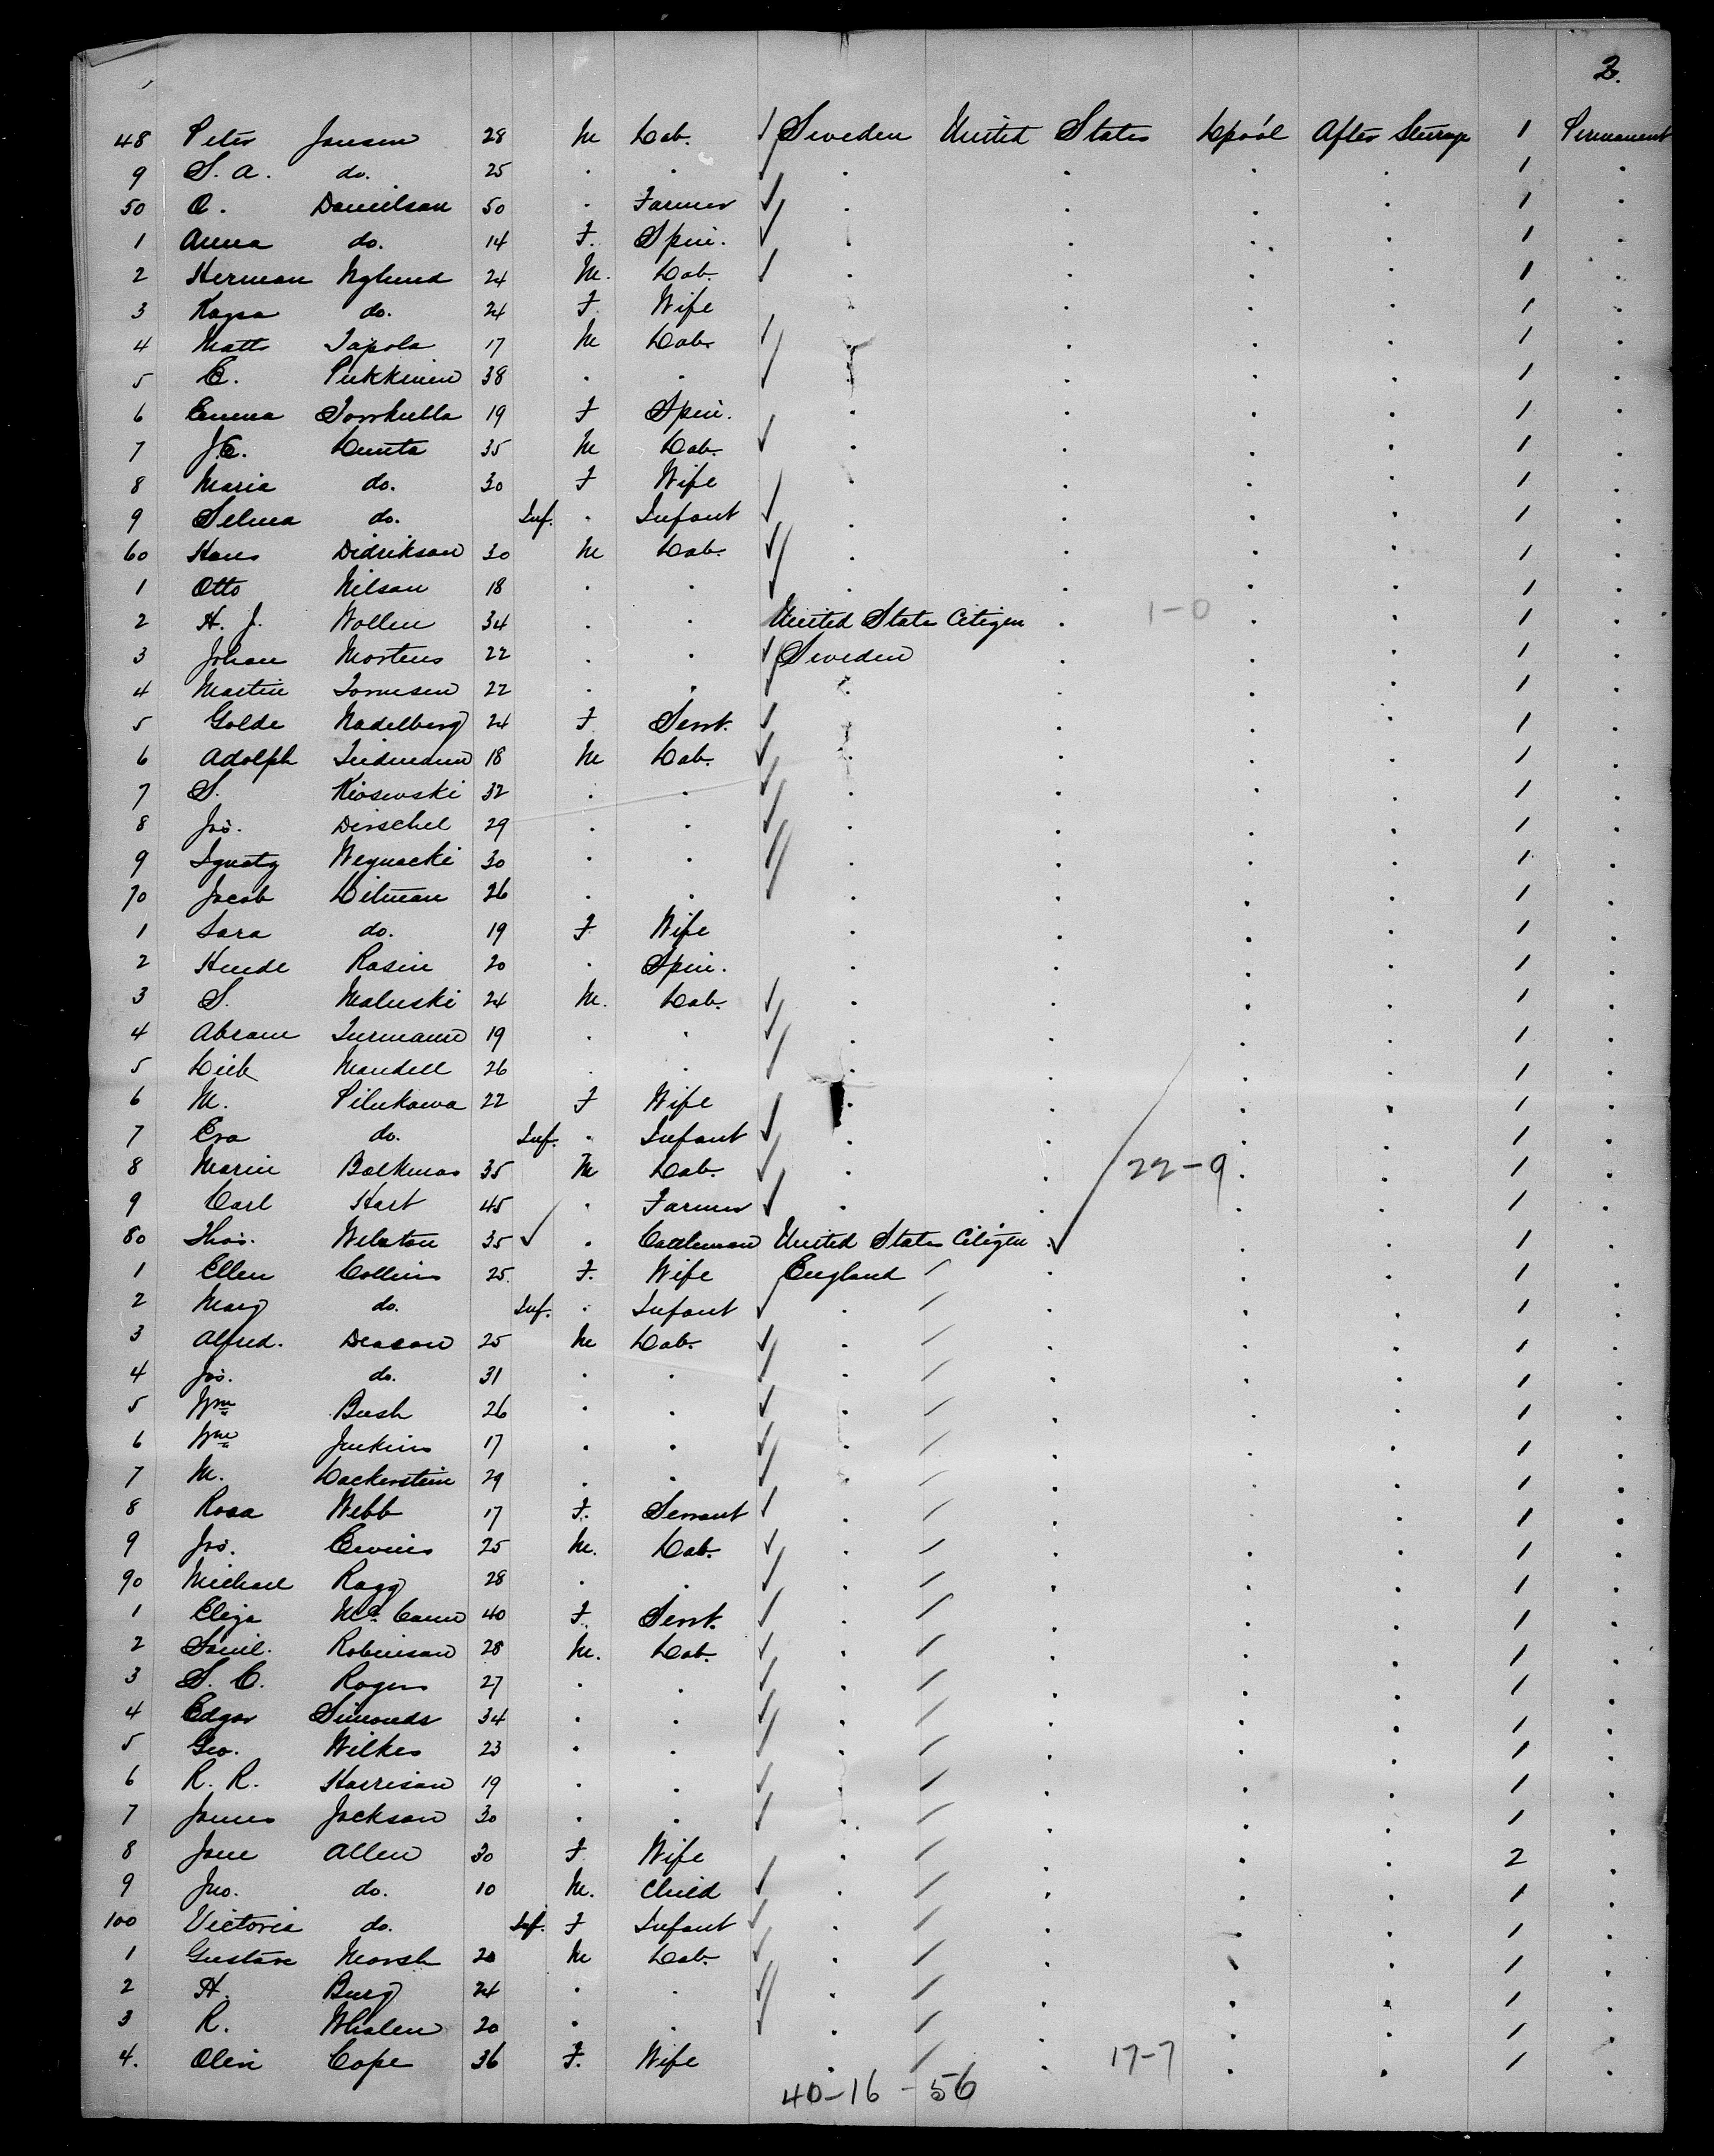 2.
48 Peter Jansen 28 M Lab. Sweden United States Lpool After Steerage 1 Permanent
9 S. A. do. 25 1
50 O. Danielson 50 Farmer 1
1 Anna do. 14 F. Spin. 1
2 Herman Nylund 24 M. Lab. 1
3 Kaysa do. 24 F. Wife 1
4 Matts Tapola 17 M Lab. 1
5 E. Pukkinen 38 1
6 Emma 19 F Spin. 1
7 J.E. Lunta 35 M Lab. 1
8 Maria do. 30 F Wife 1
9 Selma do. Inf. Infant 1
60 Hans Didrikson 30 M Lab. 1
1 Otto Nilson 18 1
2 H. J. Wollin 34 United State Citizen 1-0 1
3 Johan Mortens 22 Sweden 1
4 Martin 22 1
5 Golde Nadelberg 24 F Servt. 1
6 Adolph 18 M Lab. 1
7 S. Kiosewski 32 1
8 Jos. Dirschel 29 1
9 Ignatz 30 1
70 Jacob Litman 26 1
1 Sara do. 19 F Wife 1
2 Hinde Rosin 20 Spin. 1
3 S. Maluski 24 M. Lab. 1
4 Abram 19 1
5 Leib Mandell 26 1
6 M. Pilukowa 22 F Wife 1
7 Eva do. Inf. Infant 1
8 35 M Lab. 22-9 1
9 Carl Hart 45 Farmer 1
80 Thos. Welston 35 Cattleman United States Citizen 1
1 Ellen Collins 25. F. Wife England 1
2 Mary do. Inf. Infant 1
3 Alfred. Deason 25 M Lab. 1
4 Jos. do. 31 1
5 Wm Bush 26 1
6 Wm Jenkins 17 1
7 M. Lackerstein 29 1
8 Rosa Webb 17 F. Servant 1
9 Jos. 25 M. Lab. 1
90 Michael Ragg 28 1
1 Eliza McCann 40 F. Servt. 1
2 Saml. Robinson 28 M. Lab. 1
3 S. C. Rogers 27 1
4 Edgar Simonds 34 1
5 Geo. Wilkes 23 1
6 R. R. Harrison 19 1
7 James Jackson 30 1
8 Jane Allen 30 F. Wife 2
9 Jno. do. 10 M. Child 1
100 Victoria do. Inf. F Infant 1
1 Gustave Marsh 20 M Lab. 1
2 H. Burg 24 1
3 R. Whalen 20 1
4. Cope 36 F. Wife 17-7 1
40-16-56